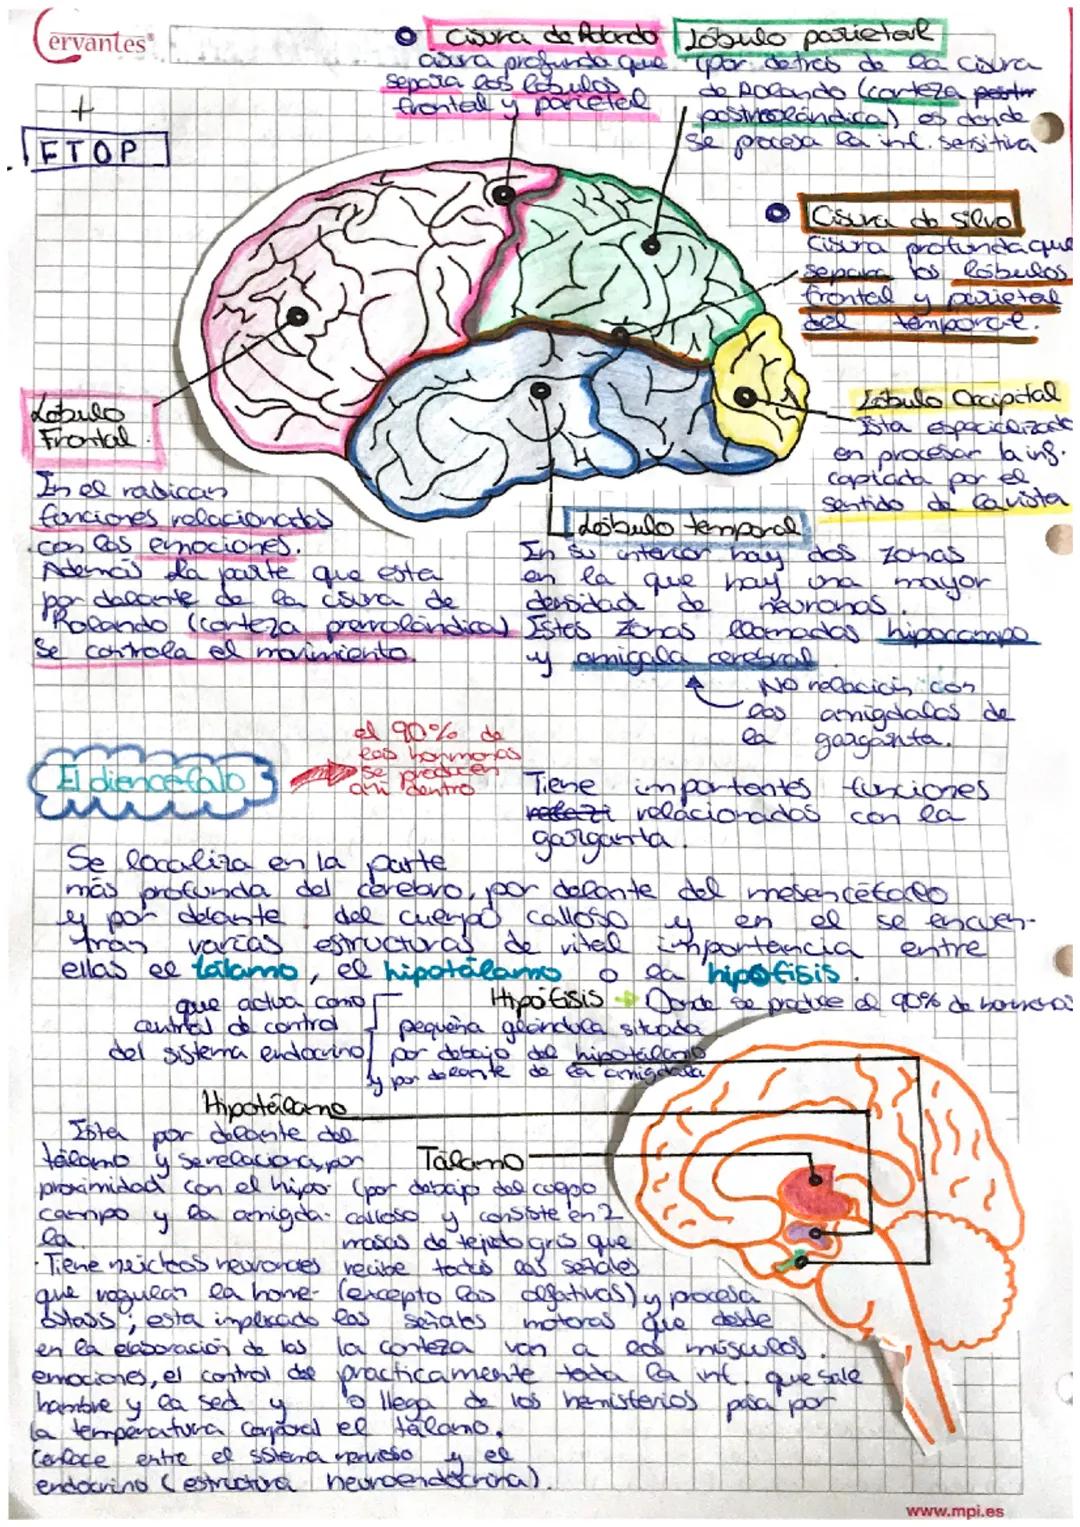 Cervantes
+
FTOP
Cisura de Rolando
cisura profunda que
separa los lóbulos
frontal y parietal
Lóbulo parietal
(por detras de la cisura
de Rolando (corteza
postrrolándica) es donde
se procesa la inf. sensitiva
Cisura de Silvo
Cisura profunda que
separa los lóbulos
frontal y parietal
del temporal.
Lóbulo Occipital
Esta especializado
en procesar la inf.
captada por el
sentido de la vista
Lóbulo
Frontal.
En el radican
funciones relacionadas
con las emociones.
Además la parte que esta
por delante de la cisura de
Rolando (corteza prerrolándica)
se controla el movimiento.
Lóbulo temporal
En su interior hay dos zonas
en la que hay una mayor
densidad de neuronas.
Estas zonas llamadas hipocampo
y amígdala cerebral
No relación con
las amígdalas de
la garganta.
El diencefalo
el 90% de
las hormonas
se producen
ahí dentro
Tiene importantes funciones
relacionadas con la
garganta.
Se localiza en la parte
más profunda del cerebro, por delante del mesencéfalo
y por delante del cuerpo calloso y en el se encuen-
tran varias estructuras de vital importancia entre
ellas el tálamo, el hipotálamo o la hipófisis.
Hipófisis → Donde se produce el 90% de hormonas
que actua como
central de control
del sistema endocrino
pequeña glándula situada
por debajo del hipotálamo
y por delante de la amígdala
Hipotálamo
Esta por delante del
tálamo y se relaciona, por
proximidad con el hipo-
campo y la amígda-
la
- Tiene núcleos neuronales
que regulan la home-
ostasis; esta implicado
en la elaboración de las
emociones, el control del
hambre y la sed y
la temperatura corporal
Cenlace entre el sistema nervioso y el
endocrino (estructura neuroendocrina).
Tálamo
(por debajo del cuerpo
calloso y consiste en 2
masas de tejido gris que
recibe todas las señales
(excepto las olfativas) y procesa
las señales motoras que desde
la corteza van a los músculos.
practicamente toda la inf. que sale
o llega de los hemisferios pasa por
el tálamo.
www.mpi.es